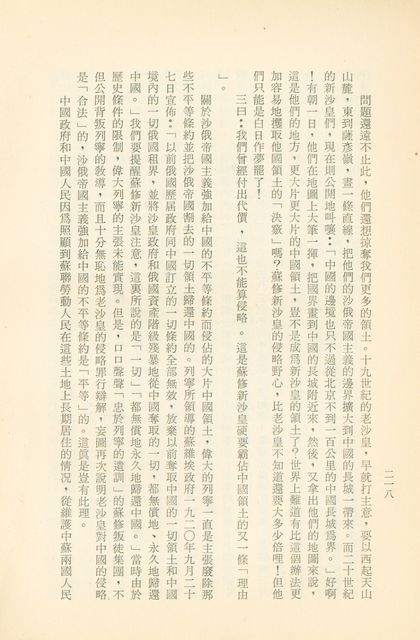 二一八
問題還遠不止此，他們還想掠奪我們更多的領土。十九世紀的老沙皇，早就打主意，要以西起天山
山麓，東到薩彥嶺，畫一條直線，把他們的沙俄帝國主義的邊界擴大到中國的長城一帶來。而二十世紀
的新沙皇們，現在則公開地叫嚷：「中國的邊境也只不過從北京不到一百公里的中國長城爲界。」好啊
！有朝一日，他們在地圖上大筆一揮，把國界畫到中國的長城附近來，然後，又拿出他們的地圖來說，
這是他們的地方，更大片更大片的中國領土，豈不是成爲新沙皇的領土了？世界上難道有比這個辦法更
加容易地攫取他國領土的「決意」嗎？蘇修新沙皇的侵略野心，比老沙皇不知道還要大多少倍哩！但他
們只能是白日作夢罷了！
三曰：我們曾經付出代價，這也不能算侵略。這是蘇修新沙皇硬要霸佔中國領土的又一條「理由
」。
關於沙俄帝國主義強加給中國的不平等條約而侵佔的大片中國領土，偉大的列寧一直是主張廢除那
些不平等條約並把沙俄帝國割去的一切領土歸還中國的。列寧所領導的蘇維埃政府一九二〇年九月二十
七日宣佈：「以前俄國歷屆政府同中國訂立的一切條約全部無效，放棄以前奪取中國的一切領土和中國
境內的一切俄國租界，並將沙皇政府和俄國資產階級殘暴地從中國奪取的一切，都無償地、永久地歸還
中國。」我們要提醒蘇修新沙皇注意，這裏所說的是「一切」「都無償地永久地歸還中國。」當時由於
歷史條件的限制，偉大列寧的主張未能實現。但是，口口聲聲「忠於列寧的遺訓」的蘇修叛徒集團，不
但公開背叛列寧的教導，而且十分無恥地爲老沙皇的侵略罪行辯解，妄圖再次說明老沙皇對中國的侵略
是「合法」的，沙俄帝國主義強加給中國的不平等條約是「平等」的。這眞是豈有此理。
中國政府和中國人民因爲照顧到蘇聯勞動人民在這些土地上長期居住的情况，從維護中蘇兩國人民